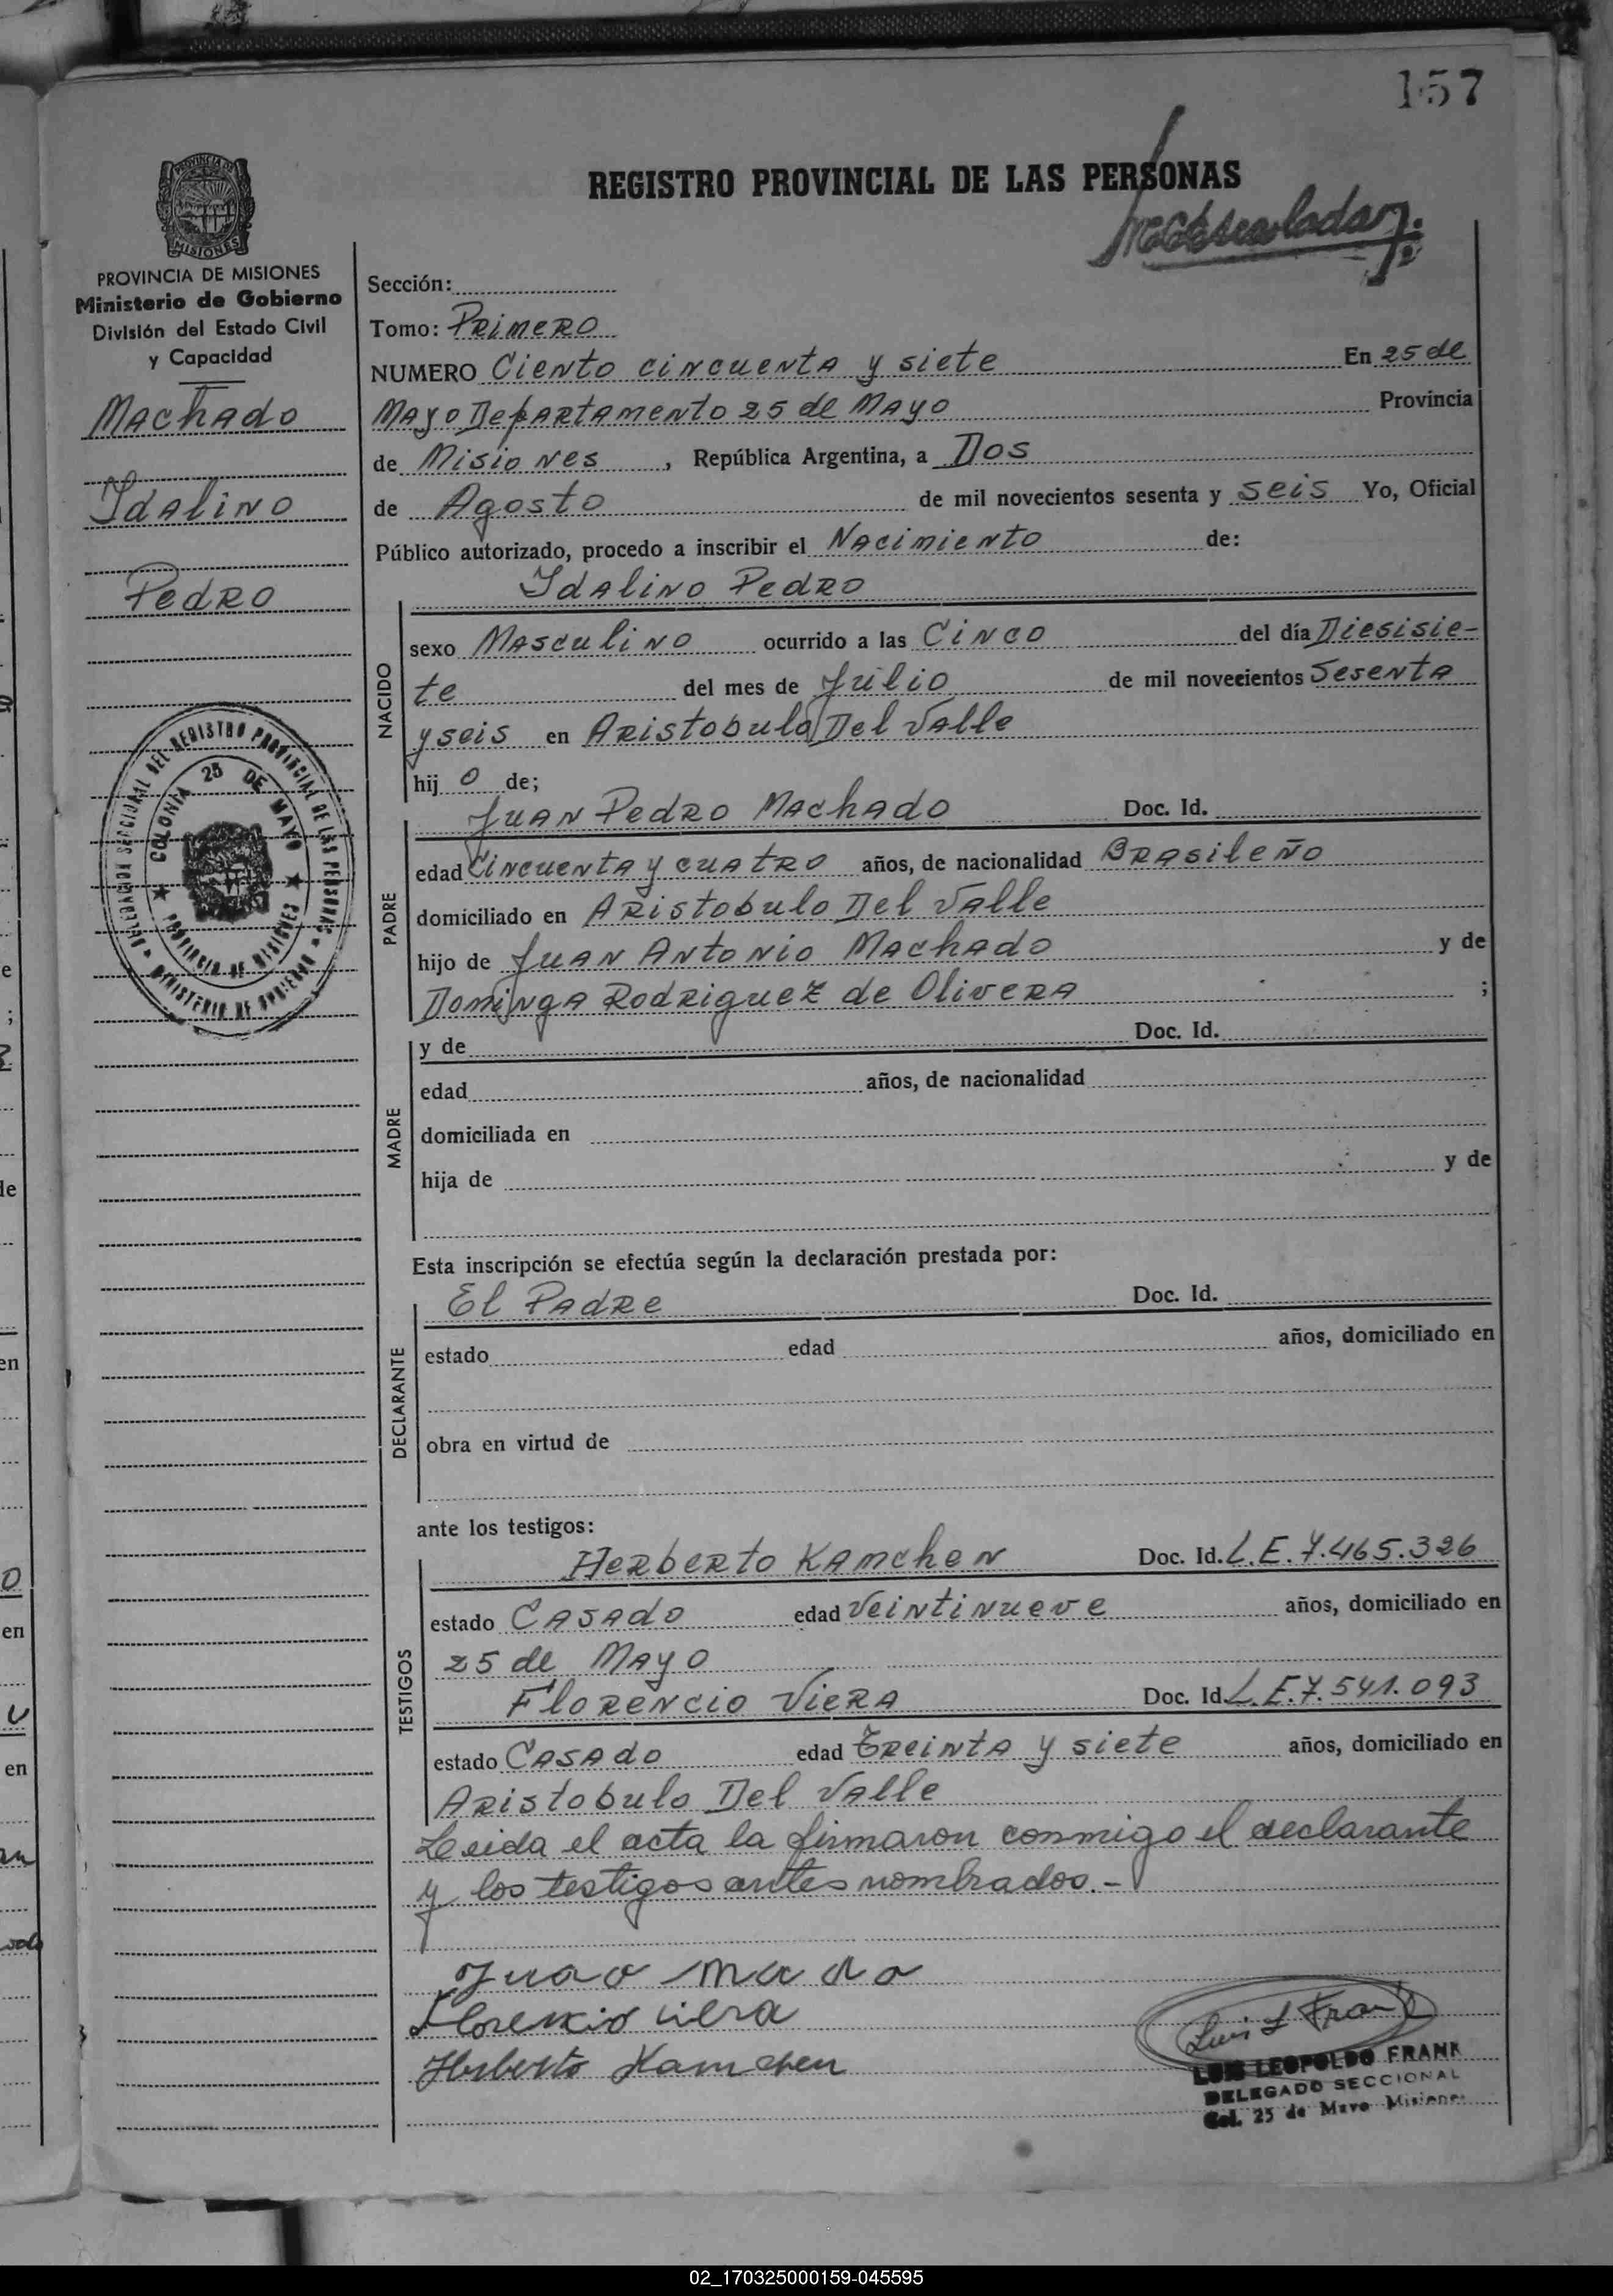 157
PROVINCIA DE
MISIONES
REGISTRO PROVINCIAL DE LAS PERSONAS
PROVINCIA DE MISIONES
Ministerio de Gobierno
División del Estado Civil
y Capacidad
Machado
Idalino
Pedro
DELEGACION SECCIONAL DEL REGISTRO PROVINCIAL DE LAS PERSONAS
MINISTERIO DE GOBIERNO
COLONIA 25 DE MAYO
PROVINCIA DE MISIONES
Sección:
Tomo: Primero
NUMERO Ciento cincuenta y siete En 25 de
Mayo Departamento 25 de Mayo Provincia
de Misiones , República Argentina, a Dos
de Agosto de mil novecientos sesenta y seis Yo, Oficial
Público autorizado, procedo a inscribir el Nacimiento de:
Idalino Pedro
NACIDO
sexo Masculino ocurrido a las Cinco del día Diesisie-
te del mes de Julio de mil novecientos Sesenta
y seis en Aristobulo Del Valle
hij o de;
Juan Pedro Machado Doc. Id.
PADRE
edad Cincuenta y cuatro años, de nacionalidad Brasileño
domiciliado en Aristobulo Del Valle
hijo de Juan Antonio Machado y de
Dominga Rodriguez de Olivera ;
y de Doc. Id.
MADRE
edad años, de nacionalidad
domiciliada en
hija de y de
Esta inscripción se efectúa según la declaración prestada por:
El Padre Doc. Id.
DECLARANTE
estado edad años, domiciliado en
obra en virtud de
ante los testigos:
Herberto Kamchen Doc. Id. L.E. 7.465.326
TESTIGOS
estado Casado edad Veintinueve años, domiciliado en
25 de Mayo
Florencio Viera Doc. Id. L.E. 7.541.093
estado Casado edad Treinta y siete años, domiciliado en
Aristobulo Del Valle
Leida el acta la firmaron conmigo el declarante
y los testigos antes nombrados.-
Florencio Viera
Herberto Kamchen
Luis L Frank
LUIS LEOPOLDO FRANK
DELEGADO SECCIONAL
Col. 25 de Mayo Misiones
02_170325000159-045595